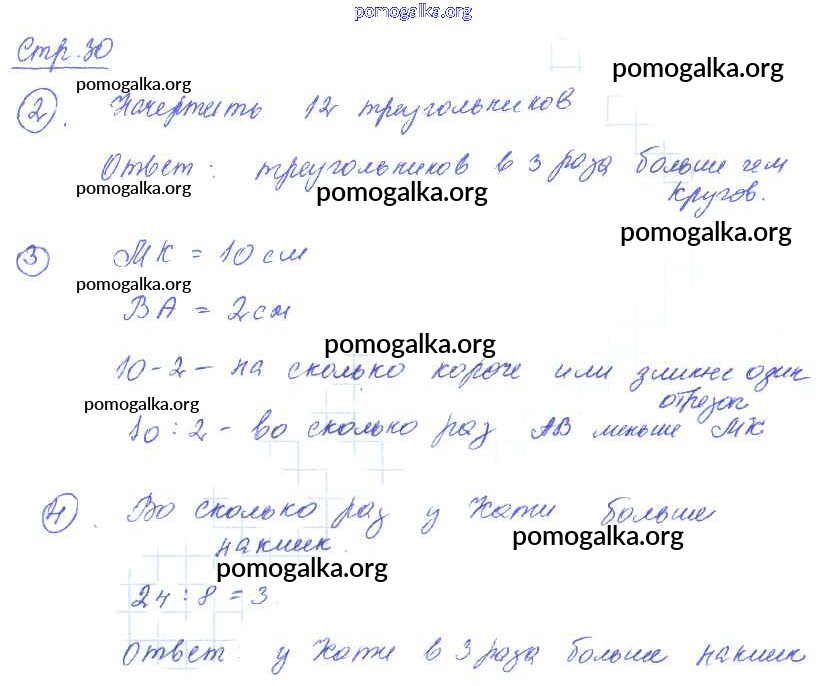 pomogalka.org
Стр. 30
pomogalka.org
pomogalka.org
2. Начертить 12 треугольников
Ответ: треугольников в 3 раза больше чем
кругов.
pomogalka.org
pomogalka.org
pomogalka.org
3 МК = 10 см
pomogalka.org
ВА = 2 см
pomogalka.org
10-2 – на сколько короче или длинне один
отрезок
pomogalka.org
10 : 2 – во сколько раз АВ меньше МК
4. Во сколько раз у Кати больше
pomogalka.org
pomogalka.org
24 : 8 = 3
Ответ: у Кати в 3 раза больше